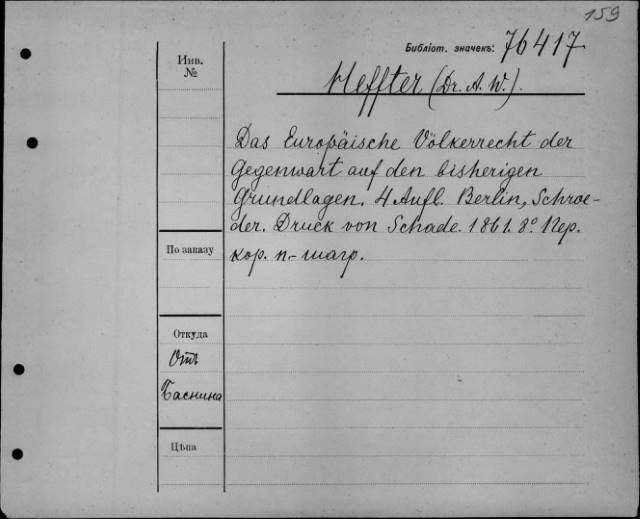 159
Библіот. значекъ: 76417
Инв.
№
Heffter (Dr. A. W.).
Das Europäische Völkerrecht der
Gegenwart auf den bisherigen
Grundlagen. 4 Aufl. Berlin, Schroe-
der. Druck von Schade. 1861. 8º. Пер.
кор. п.-шагр.
По заказу
Откуда
Отъ
Баснина
Цѣна